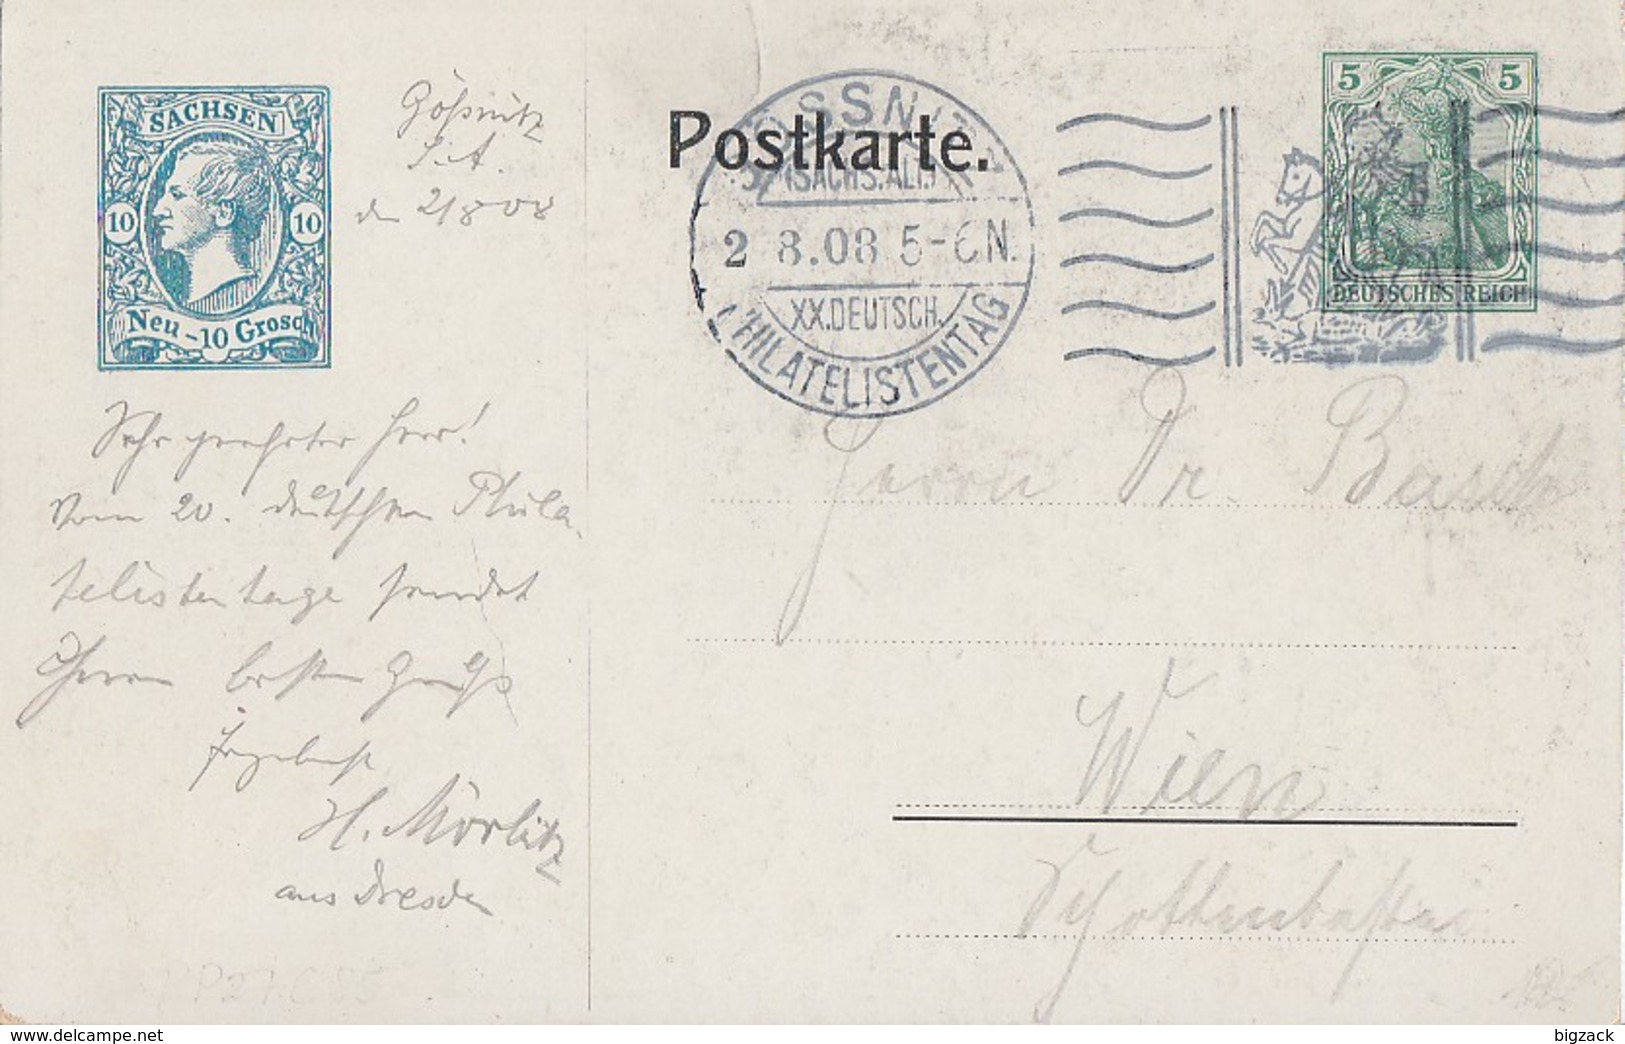 SACHSEN
10 10
Neu-10 Grosch
Gößnitz
S.A.
d. 2/8 08
Postkarte.
GÖSSNITZ
(SACHS.ALT.)
2 8.08 5-6N.
XX.DEUTSCH.
PHILATELISTENTAG
5 5
DEUTSCHES REICH
Sehr geehrter Herr!
Vom 20. deutschen Phila-
telistentage sendet
Ihnen besten Gruß
Ergebenst
H. Mörlitz
aus Dresden
Herrn Dr.
Wien
PP27.C.85
delcampe.net
bigzack